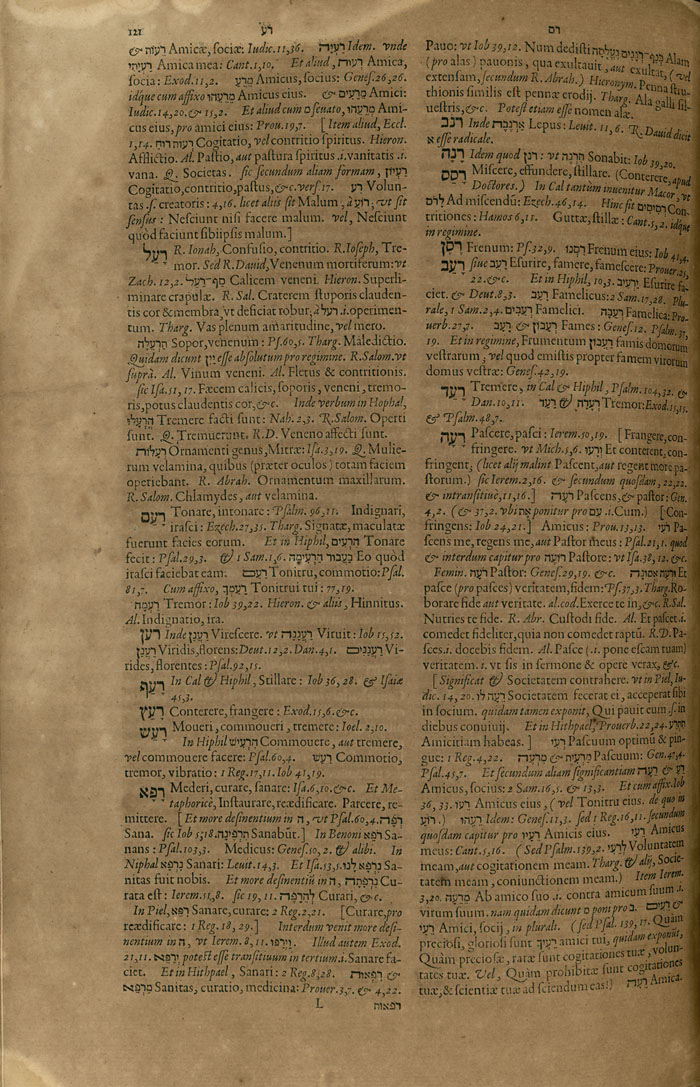 121 רע רם
Pauo: vt Iob 39,12. Num dedisti כנף־רננים נעלסה Alam
(pro alas) pauonis, qua exultauit, aut exultat, (vel
extensam, secundum R. Abrah.) Hieronym. Penna stru-
thionis similis est pennæ erodij. Tharg. Ala galli sil-
uestris, &c. Potest etiam esse nomen alæ.
רנב Inde ארנבת Lepus: Leuit. 11, 6. R. Dauid dicit
א esse radicale.
רנה Idem quod רנן: vt תרנה Sonabit: Iob 39,20.
רסס Miscere, effundere, stillare. (Conterere, apud
Doctores.) In Cal tantùm inuenitur Macor, vt
לרס Ad miscendũ: Ezech. 46,14. Hinc sit רסיסים Con-
tritiones: Hamos 6,15. Guttæ, stillæ: Cant. 5,2. idque
in regimine.
רסן Frenum: Ps. 32,9. רסנו Frenum eius: Iob 41,4.
רעב siue רעב Esurire, famere, famescere: Prouer. 25,
22. &c. Et in Hiphil, 10,3. ירעיב Esurire fa-
ciet. & Deut. 8,3. רעב Famelicus: 2 Sam. 17,28. Plu-
rale, 1 Sam. 2,4. רעבים Famelici. רעבה Famelica: Pro-
uerb. 27,7. רעבון & רעב Fames: Genes. 12. Psalm. 37,
19. Et in regimine, Frumentum רעבון famis domorum
vestrarum, vel quod emistis propter famem virorum
domus vestræ: Genes. 42,19.
רעד Tremere, in Cal & Hiphil, Psalm. 104,32. &
Dan. 10,11. רעד & רעדה Tremor: Exod. 15,15.
& Psalm. 48,7.
רעה Pascere, pasci: Ierem. 50,19. [Frangere, con-
fringere. vt Mich. 5,6. ורעו Et conterent, con-
fringent, (licet alij malint Pascent, aut regent more pa-
storum.) sic Ierem. 2,16. & secundum quosdam, 22,22.
& intransitiuè, 11,16.] רעה Pascens, & pastor: Gen.
4,2. (& 37,2. vbi את ponitur pro עם .i. Cum.) [Con-
fringens: Iob 24,21.] Amicus: Prou. 13,13. רעי Pa-
scens me, regens me, aut Pastor meus: Psal. 23,1. quod
& interdum capitur pro רועה Pastore: vt Isa. 38,12. &c.
Femin. רעה Pastor: Genes. 29,19. &c. ורעה אמונה Et
pasce (pro pasces) veritatem, fidem: Ps. 37,3. Tharg. Ro-
borare fide aut veritate. al. cod. Exerce te in, &c. R. Sal.
Nutries te fide. R. Abr. Custodi fide. Al. Et pasce .i.
comedet fideliter, quia non comedet raptũ. R. D. Pa-
sces .i. docebis fidem. Al. Pasce (.i. pone escam tuam)
veritatem .i. vt sis in sermone & opere verax, &c.
[Significat & Societatem contrahere. vt in Piel, Iu-
dic. 14, 20. רעה לו Societatem fecerat ei, acceperat sibi
in socium. quidam tamen exponit, Qui pauit eum .s. in
diebus conuiuij. Et in Hithpael, Prouerb. 22,24. תתרע
Amicitiam habeas.] רעי Pascuum optimũ & pin-
gue: 1 Reg. 4,22. מרעית & מרעה Pascuum: Gen. 47,4.
Psal. 45,7. Et secundum aliam significantiam רע & רעה
Amicus, socius: 2 Sam. 16,5. & 13,3. Et cum affix. Iob
36, 33. רעו Amicus eius, (vel Tonitru eius. de quo in
רוע.) רעהו Idem: Genes. 11,3. sed 1 Reg. 16,11. secundum
quosdam capitur pro רעיו Amicis eius. רעי Amicus
meus: Cant. 5,16. (Sed Psalm. 139,2. לרעי Voluntatem
meam, aut cogitationem meam. Tharg. & alij, Socie-
tatem meam, coniunctionem meam.) Item Ierem.
3,20. מרעה Ab amico suo .i. contra amicum suum .i.
virum suum. nam quidam dicunt מ poni pro ב. רעים &
רעי Amici, socij, in plurali. (sed Psal. 139, 17. Quàm
preciosi, gloriosi sunt רעיך amici tui, quidam exponit,
Quàm preciosæ, raræ sunt cogitationes tuæ, volun-
tates tuæ. Vel, Quàm prohibitæ sunt cogitationes
tuæ, & scientiæ tuæ ad sciendum eas!) רעה Amica.
& רעות Amicæ, sociæ: Iudic. 11,36. רעיה Idem. vnde
רעיתי Amica mea: Cant. 1,10. Et aliud, רעות Amica,
socia: Exod. 11,2. מרע Amicus, socius: Genes. 26,26.
idque cum affixo מרעהו Amicus eius. & מרעים Amici:
Iudic. 14,20. & 15,2. Et aliud cum ם seruato, מרעהו Ami-
cus eius, pro amici eius: Prou. 19,7. [Item aliud, Eccl.
1,14. רעות רוח Cogitatio, vel contritio spiritus. Hieron.
Afflictio. Al. Pastio, aut pastura spiritus .i. vanitatis .i.
vana. Q. Societas. sic secundum aliam formam, רעיון
Cogitatio, contritio, pastus, &c. vers. 17. רע Volun-
tas .s. creatoris: 4,16. licet aliis sit Malum, à רוע: vt sit
sensus: Nesciunt nisi facere malum. vel, Nesciunt
quòd faciunt sibiipsis malum.]
רעל R. Ionah, Confusio, contritio. R. Ioseph, Tre-
mor. Sed R. Dauid, Venenum mortiferum: vt
Zach. 12,2. סף־רעל Calicem veneni. Hieron. Superli-
minare crapulæ. R. Sal. Craterem stuporis claudentis
cor & membra, vt deficiat robur; à רעל .i. operimen-
tum. Tharg. Vas plenum amaritudine, vel mero.
תרעלה Sopor, venenum: Ps. 60,5. Tharg. Maledictio.
Quidam dicunt יין esse absolutum pro regimine. R. Salom. vt
suprà. Al. Vinum veneni. Al. Fletus & contritionis.
sic Isa. 51, 17. Fæcem calicis, soporis, veneni, tremo-
ris, potus claudentis cor, &c. Inde verbum in Hophal,
הרעלו Tremere facti sunt: Nah. 2,3. R. Salom. Operti
sunt. Q. Tremuerunt. R. D. Veneno affecti sunt.
רעלות Ornamenti genus, Mitræ: Isa. 3,19. Q. Mulie-
rum velamina, quibus (præter oculos) totam faciem
operiebant. R. Abrah. Ornamentum maxillarum.
R. Salom. Chlamydes, aut velamina.
רעם Tonare, intonare: Psalm. 96,11. Indignari,
irasci: Ezech. 27,35. Tharg. Signatæ, maculatæ
fuerunt facies eorum. Et in Hiphil, הרעים Tonare
fecit: Psal. 29,3. & 1 Sam. 1,6. בעבור הרעימה Eo quòd
irasci faciebat eam. רעם Tonitru, commotio: Psal.
81,7. Cum affixo, רעמך Tonitrui tui: 77,19.
רעמה Tremor: Iob 39,22. Hieron. & aliis, Hinnitus.
Al. Indignatio, ira.
רען Inde רענן Virescere. vt רעננה Viruit: Iob 15,32.
רענן Viridis, florens: Deut. 12,2. Dan. 4,1. רעננים Vi-
rides, florentes: Psal. 92,15.
רעף In Cal & Hiphil, Stillare: Iob 36, 28. & Isaiæ
45,3.
רעץ Conterere, frangere: Exod. 15,6. &c.
רעש Moueri, commoueri, tremere: Ioel. 2,10.
In Hiphil הרעיש Commouere, aut tremere,
vel commouere facere: Psal. 60,4. רעש Commotio,
tremor, vibratio: 1 Reg. 17,11. Iob 41,19.
רפא Mederi, curare, sanare: Isa. 6,10. &c. Et Me-
taphoricè, Instaurare, reædificare. Parcere, re-
mittere. [Et more desinentium in ה, vt Psal. 60,4. רפה
Sana. sic Iob 5,18. תרפינה Sanabũt.] In Benoni רפא Sa-
nans: Psal. 103,3. Medicus: Genes. 50,2. & alibi. In
Niphal נרפא Sanari: Leuit. 14,3. Et Isa. 53,5. נרפא לנו Sa-
nitas fuit nobis. Et more desinentiũ in ה, נרפתה Cu-
rata est: Ierem. 51,8. sic 19, 11. להרפה Curari, &c.
In Piel, רפא Sanare, curare: 2 Reg. 2,21. [Curare, pro
reædificare: 1 Reg. 18, 29.] Interdum venit more desi-
nentium in ה, vt Ierem. 8, 11. וירפו. Illud autem Exod.
21,11. ורפא ירפא potest esse transitiuum in tertium .i. Sanare fa-
ciet. Et in Hithpael, Sanari: 2 Reg. 8,28. רפאות &
מרפא Sanitas, curatio, medicina: Prouer. 3,7. & 4,22.
L רפאות